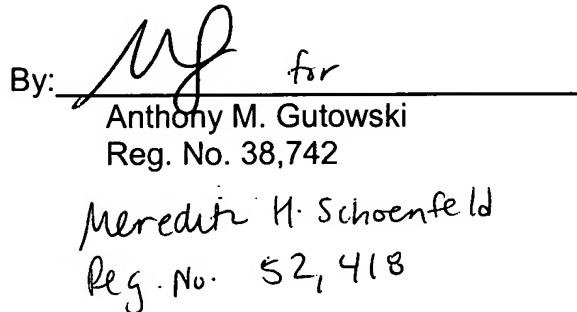 By: for
Anthony M. Gutowski
Reg. No. 38,742
Meredith H. Schoenfeld
Reg. No. 52,418